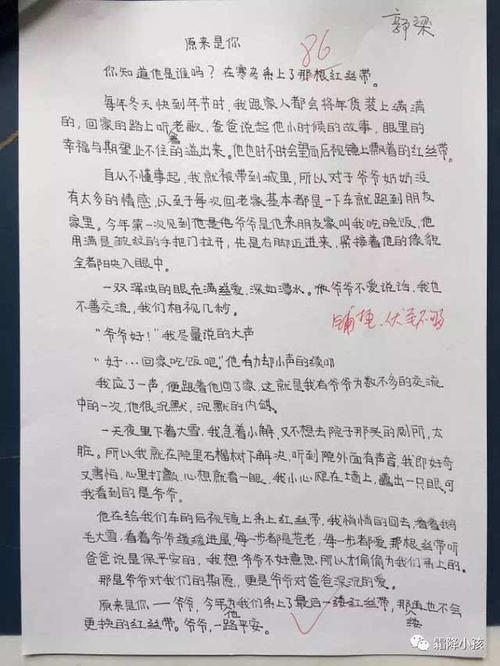 郭梁
原来是你
86
你知道他是谁吗？在寒冬系上了那根红丝带。
每年冬天快到年节时，我跟家人都会将年货装上满满
的，回家的路上听老歌，爸爸说起他小时候的故事，眼里的
幸福与期望止不住的溢出来。他也时不时会望向后视镜上飘着的红丝带。
自从不懂事起，我就被带到城里，所以对于爷爷奶奶没
有太多的情感，以至于每次回老家基本都是一下车就跑到朋友
家里。今年第一次见到他是他来朋友家叫我吃晚饭，他
用满是皱纹的手把门拉开，先是右脚迈进来，紧接着他的像貌
全都映入眼中。
一双浑浊的眼充满慈爱，深如潭水。他爷爷不爱说话，我也
不善交流，我们相视几秒。
铺垫、伏笔不够
“爷爷好！”我尽量说的大声
“好…回家吃饭吧。”他有力却小声的续叨
我应了一声，便跟着他回了家，这就是我有爷爷为数不多的交流
中的一次，他很沉默，沉默的内敛。
一天夜里下着大雪，我急着小解，又不想去院子那头的厕所，太
脏。所以我就在院里石榴树下解决。听到院外面有声音，我即好奇
又害怕，心里打鼓，心想就看一眼，我小心爬在墙上，露出一只眼，可
我看到的是爷爷。
他在给我们车的后视镜上系上红丝带，我悄悄的回去，看着鹅
毛大雪，看着爷爷缓缓进屋，每一步都是苍老，每一步都爱，那根丝带听
爸爸说是保平安的，我想爷爷不好意思，所以才偷偷为我们系上的。
那是爷爷对我们的期愿，更是爷爷对爸爸深沉的爱。
原来是你——爷爷，今年他为我们系上了最后一缕红丝带，那缕也不会
更换的红丝带。爷爷，一路平安。
霜降小孩